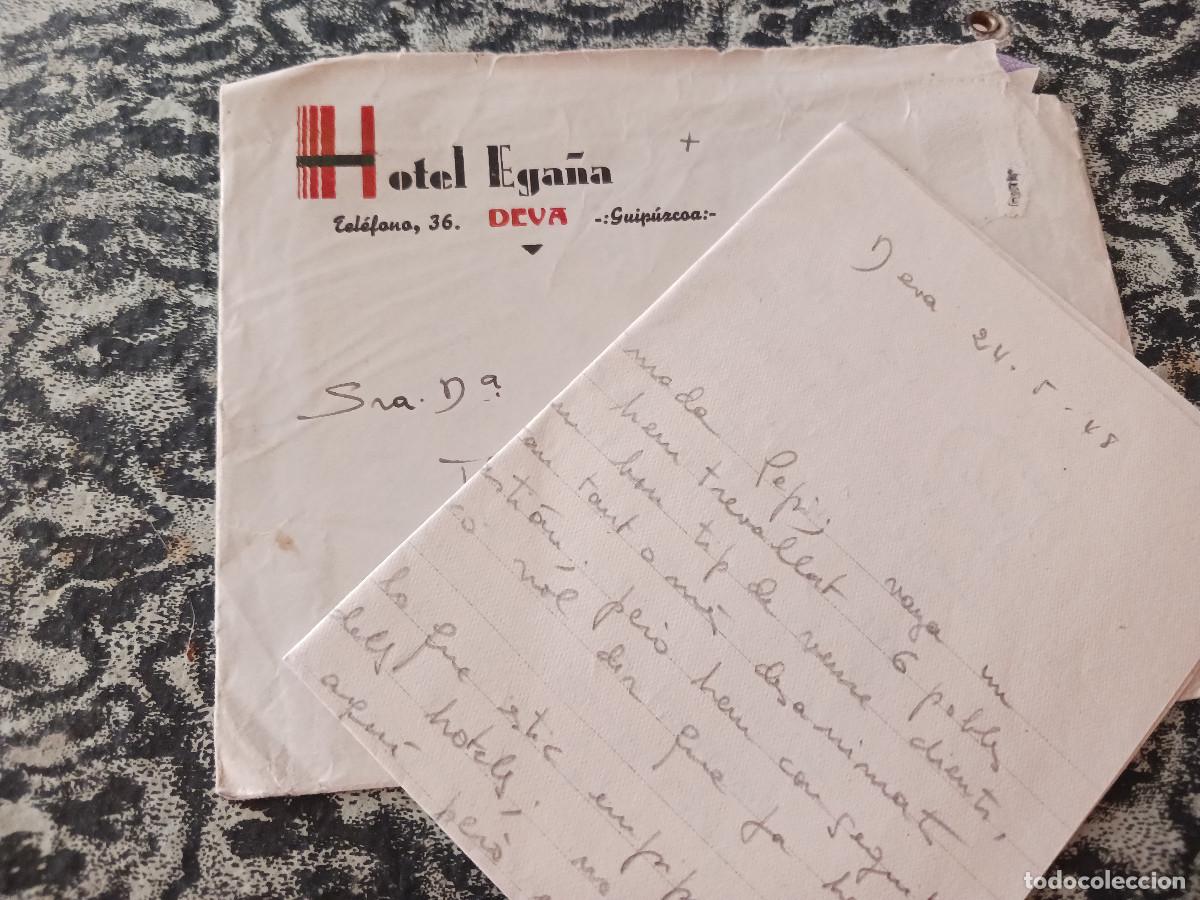 Hotel Egaña
Teléfono, 36. DEVA -:Guipúzcoa:-
Sra. Dª
Deva 24-5-48
mada Pepi, vaya un
hem trevallat 6 pobles
un bon tip de veure clients,
tant o més desanimats
però hem conseguit
co vól dir que ja h
la que estic empip
dels hotels, no
aquí però
todocoleccion